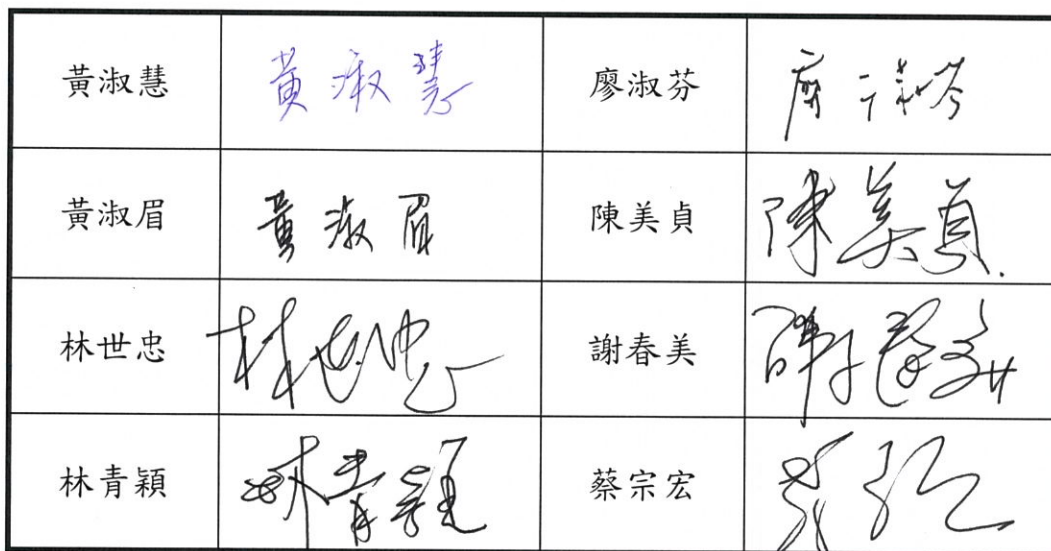 黃淑慧 黃淑慧 廖淑芬
黃淑眉 黃淑眉 陳美貞 陳美貞
林世忠 林世忠 謝春美
林青穎 林青 蔡宗宏